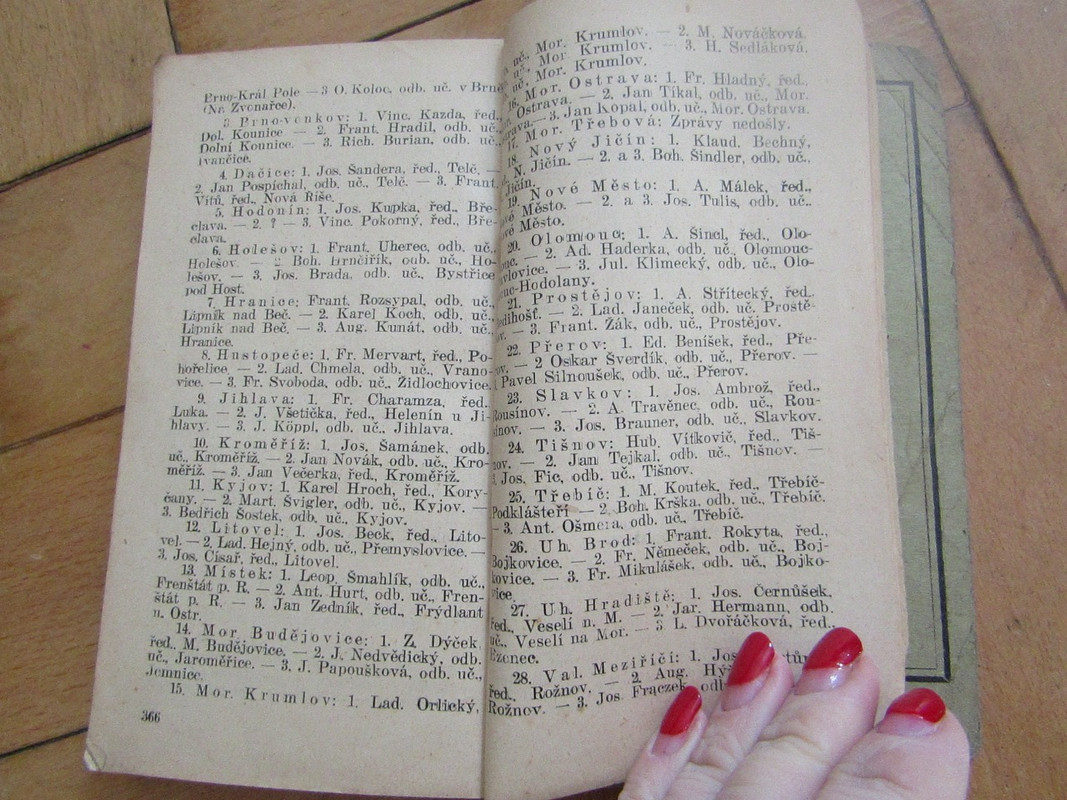 Brno-Král Pole — 3 O. Koloc, odb. uč. v Brně
(Nr. Zvonařce).
3. Brno-venkov: 1. Vinc. Kazda, řed.,
Dol. Kounice — 2. Frant. Hradil, odb. uč.,
Dolní Kounice. — 3. Rich. Burian, odb. uč.,
Ivančice.
4. Dačice: 1. Jos. Šandera, řed., Telč. —
2. Jan Pospíchal, odb. uč., Telč. — 3. Frant.
Vítů, řed., Nová Říše.
5. Hodonín: 1. Jos. Kupka, řed., Bře-
clava. — 2. ? — 3. Vinc. Pokorný, řed., Bře-
clava.
6. Holešov: 1. Frant. Uherec, odb. uč.,
Holešov. — 2 Boh. Brnčiřík, odb. uč., Ho-
lešov. — 3. Jos. Brada, odb. uč., Bystřice
pod Host.
7. Hranice: Frant. Rozsypal, odb. uč.,
Lipník nad Beč. — 2. Karel Koch, odb. uč.,
Lipník nad Beč. — 3. Aug. Kunát, odb. uč.,
Hranice.
8. Hustopeče: 1. Fr. Mervart, řed., Po-
hořelice. — 2. Lad. Chmela, odb. uč., Vrano-
vice. — 3. Fr. Svoboda, odb. uč., Židlochovice.
9. Jihlava: 1. Fr. Charamza, řed.
Luka. — 2. J. Všetička, řed., Helenín u Ji-
hlavy. — 3. J. Köppl, odb. uč., Jihlava.
10. Kroměříž: 1. Jos. Šamánek, odb.
uč., Kroměříž. — 2. Jan Novák, odb. uč., Kro-
měříž. — 3. Jan Večerka, řed., Kroměříž.
11. Kyjov: 1. Karel Hroch, řed., Kory-
čany. — 2. Mart. Švigler, odb. uč., Kyjov. —
3. Bedřich Šostek, odb. uč., Kyjov.
12. Litovel: 1. Jos. Beck, řed., Lito-
vel. — 2. Lad. Hejný, odb. uč., Přemyslovice. —
3. Jos. Císař, řed., Litovel.
13. Místek: 1. Leop. Šmahlík, odb. uč.,
Frenštát p. R. — 2. Ant. Hurt, odb. uč., Fren-
štát p. R. — 3. Jan Zedník, řed., Frýdlant
n. Ostr.
14. Mor. Budějovice: 1. Z. Dýček,
řed., M. Budějovice. — 2. J. Nedvědický, odb.
uč., Jaroměřice. — 3. J. Papoušková, odb. uč.,
Jemnice.
15. Mor. Krumlov: 1. Lad. Orlický,
366
uč., Mor. Krumlov. — 2. M. Nováčková.
uč., Mor Krumlov. — 3. H. Sedláková.
uč., Mor. Krumlov.
16. Mor. Ostrava: 1. Fr. Hladný, řed.,
Ostrava. — 2. Jan Tíkal, odb. uč., Mor.
— 3. Jan Kopal, odb. uč., Mor. Ostrava.
17. Mor. Třebová: Zprávy nedošly.
18. Nový Jičín: 1. Klaud. Bechný,
N. Jičín. — 2. a 3. Boh. Šindler, odb. uč.,
Jičín.
19. Nové Město: 1. A. Málek, řed.,
Město. — 2. a 3. Jos. Tulis, odb. uč.,
Město.
20. Olomouc: 1. A. Šincl, řed., Olo-
— 2. Ad. Haderka, odb. uč., Olomouc-
— 3. Jul. Klimecký, odb. uč., Olo-
-Hodolany.
21. Prostějov: 1. A. Střítecký, řed.,
— 2. Lad. Janeček, odb. uč. Prostě-
— 3. Frant. Žák, odb. uč., Prostějov.
22. Přerov: 1. Ed. Beníšek, řed., Pře-
— 2 Oskar Šverdík, odb. uč., Přerov. —
Pavel Silnoušek, odb. uč., Přerov.
23. Slavkov: 1. Jos. Ambrož, řed.,
Rousínov. — 2. A. Travěnec, odb. uč., Rou-
sínov. — 3. Jos. Brauner, odb. uč., Slavkov.
24. Tišnov: Hub. Vítkovič, řed., Tiš-
nov. — 2. Jan Tejkal, odb. uč., Tišnov. —
Jos. Fic, odb. uč., Tišnov.
25. Třebíč: 1. M. Koutek, řed., Třebíč-
Podklášteří — 2. Boh. Krška, odb. uč., Třebíč.
— 3. Ant. Ošmera, odb. uč., Třebíč.
26. Uh. Brod: 1. Frant. Rokyta, řed.,
Bojkovice. — 2. Fr. Němeček, odb. uč., Boj-
kovice. — 3. Fr. Mikulášek, odb. uč., Bojko-
vice.
27. Uh. Hradiště: 1. Jos. Černůšek,
řed., Veselí n. M. — 2. Jar. Hermann, odb.
uč., Veselí na Mor. — 3 L. Dvořáčková, řed.,
Bzenec.
28. Val. Meziříčí: 1. Jos.
řed., Rožnov. — 2. Aug.
Rožnov. — 3. Jos. Fraczek, odb